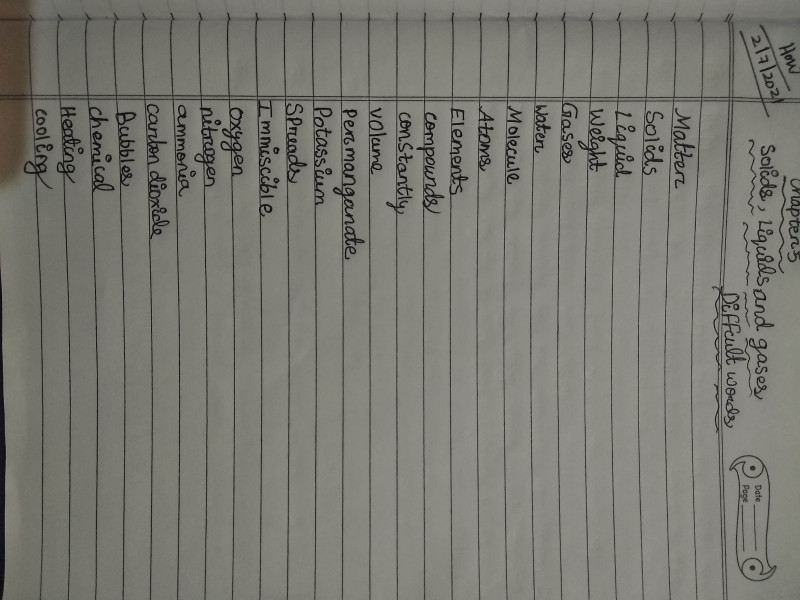 H.W
2/7/2021
Chapter 5
Solids, Liquids and gases
Difficult words
Date
Page
Matter
Solids
Liquid
Weight
Gases
Water
Molecule
Atoms
Elements
compounds
constantly
volume
permanganate
Potassium
Spreads
Immiscible
Oxygen
nitrogen
ammonia
carbon dioxide
Bubbles
chemical
Heating
cooling